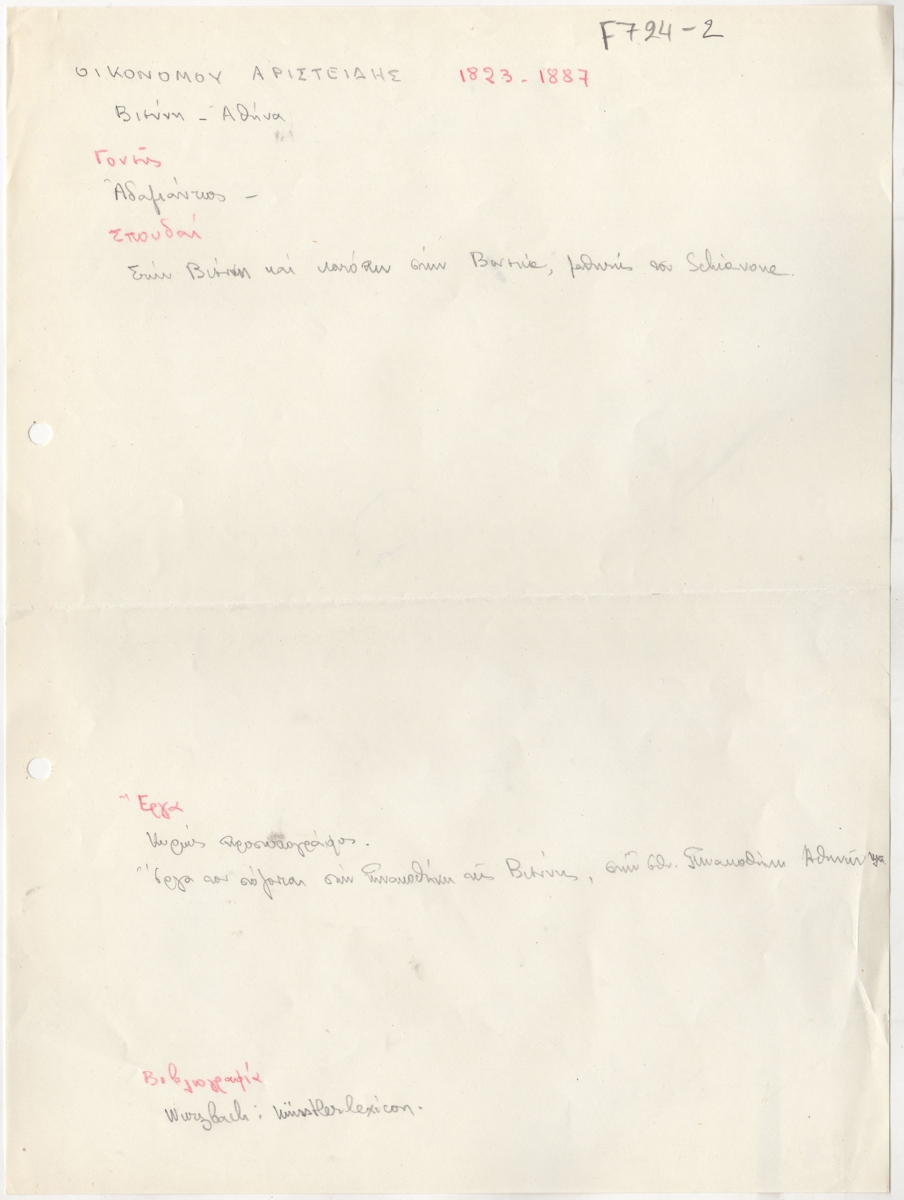 F724-2
ΟΙΚΟΝΟΜΟΥ ΑΡΙΣΤΕΙΔΗΣ 1823-1887
Βιέννη - Ἀθήνα
Γονεῖς
Ἀδαμάντιος -
Σπουδαί
Στήν Βιέννη καί κατόπιν στήν Βενετία, μαθητής του Schiavone.
Ἔργα
Κυρίως προσωπογράφος.
Ἔργα του σώζονται στήν Πινακοθήκη τῆς Βιέννης, στήν Ἐθ. Πινακοθήκη Ἀθηνῶν
Βιβλιογραφία
Wurzbach: Künstlerlexicon.